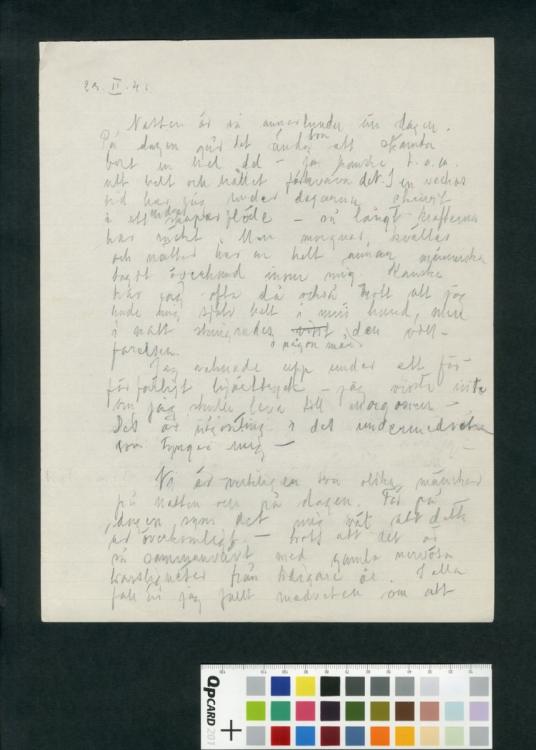 29. II. 41
Natten är så annorlunda än dagen.
På dagen går det ändå bra att skämta
bort en hel del – ja kanske t. o. m.
att helt och hållet förtvivla det. I en veckas
tid har jag under dagarna skrivit
i ett enda skaparflöde – så långt krafterna
har räckt. Men morgnar, kvällar
och nätter har en helt annan människa
tagit överhand inom mig. Kanske
har jag ofta då också trott att jag
hade mig själv helt i min hand, men
i natt skingrades i någon mån den vill-
farelsen.
Jag vaknade upp under ett för
förfärligt hjärttryck – jag visste inte
om jag skulle leva till morgonen –
Det är någonting i det undermedvetna
som tynger mig –
Vi är verkligen två olika människor
på natten och på dagen. För på
dagen syns det mig nåt att detta
är överkomligt – trots att det är
så sammanvävt med gamla nervösa
känsligheter från tidigare år. I alla
fall är jag fullt medveten om att
QPCARD 201